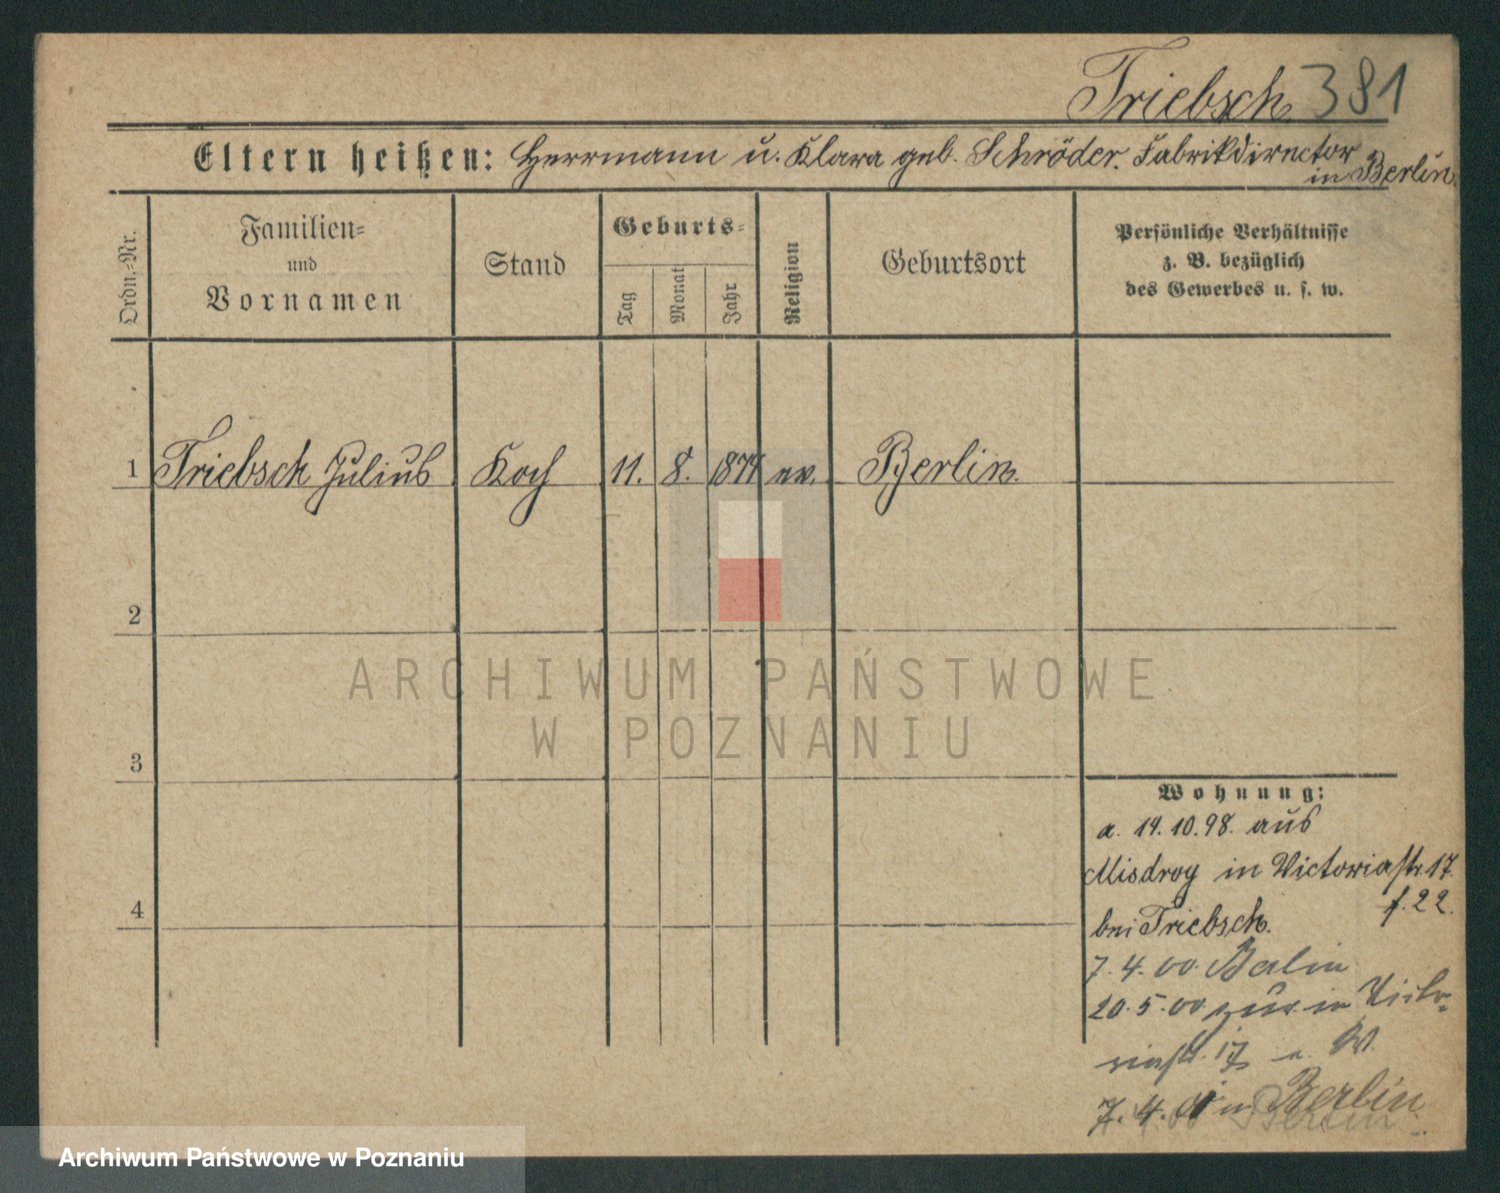 Triebsch 381
Eltern heißen: Herrmann u. Klara geb. Schröder. Fabrikdirector
in Berlin
Ordn.-Nr.
Familien-
und
Vornamen
Stand
Geburts-
Tag
Monat
Jahr
Religion
Geburtsort
Persönliche Verhältnisse
z. B. bezüglich
des Gewerbes u. s. w.
1 Triebsch Julius Koch 11. 8. 1874 ev. Berlin.
2
ARCHIWUM PAŃSTWOWE
W POZNANIU
3
Wohnung:
a. 14.10.98. aus
Misdroy in Victoriastr. 17
4
f. 22.
bei Triebsch.
7. 4. 00. Berlin
20. 5. 00 zur in Victo-
riastr. 17 W.
7. 4. in Berlin
Berlin
Archiwum Państwowe w Poznaniu